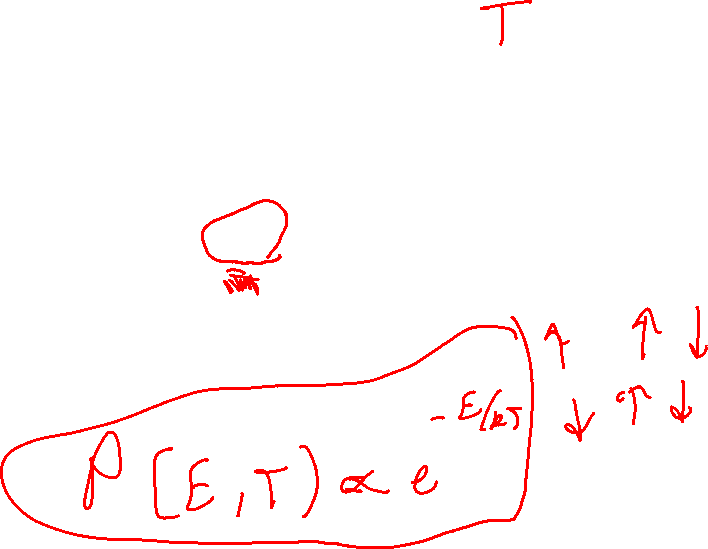 T
↑ ↑ ↓
↓ ↑ ↓
P [E, T) ∝ e^{-E/kT}